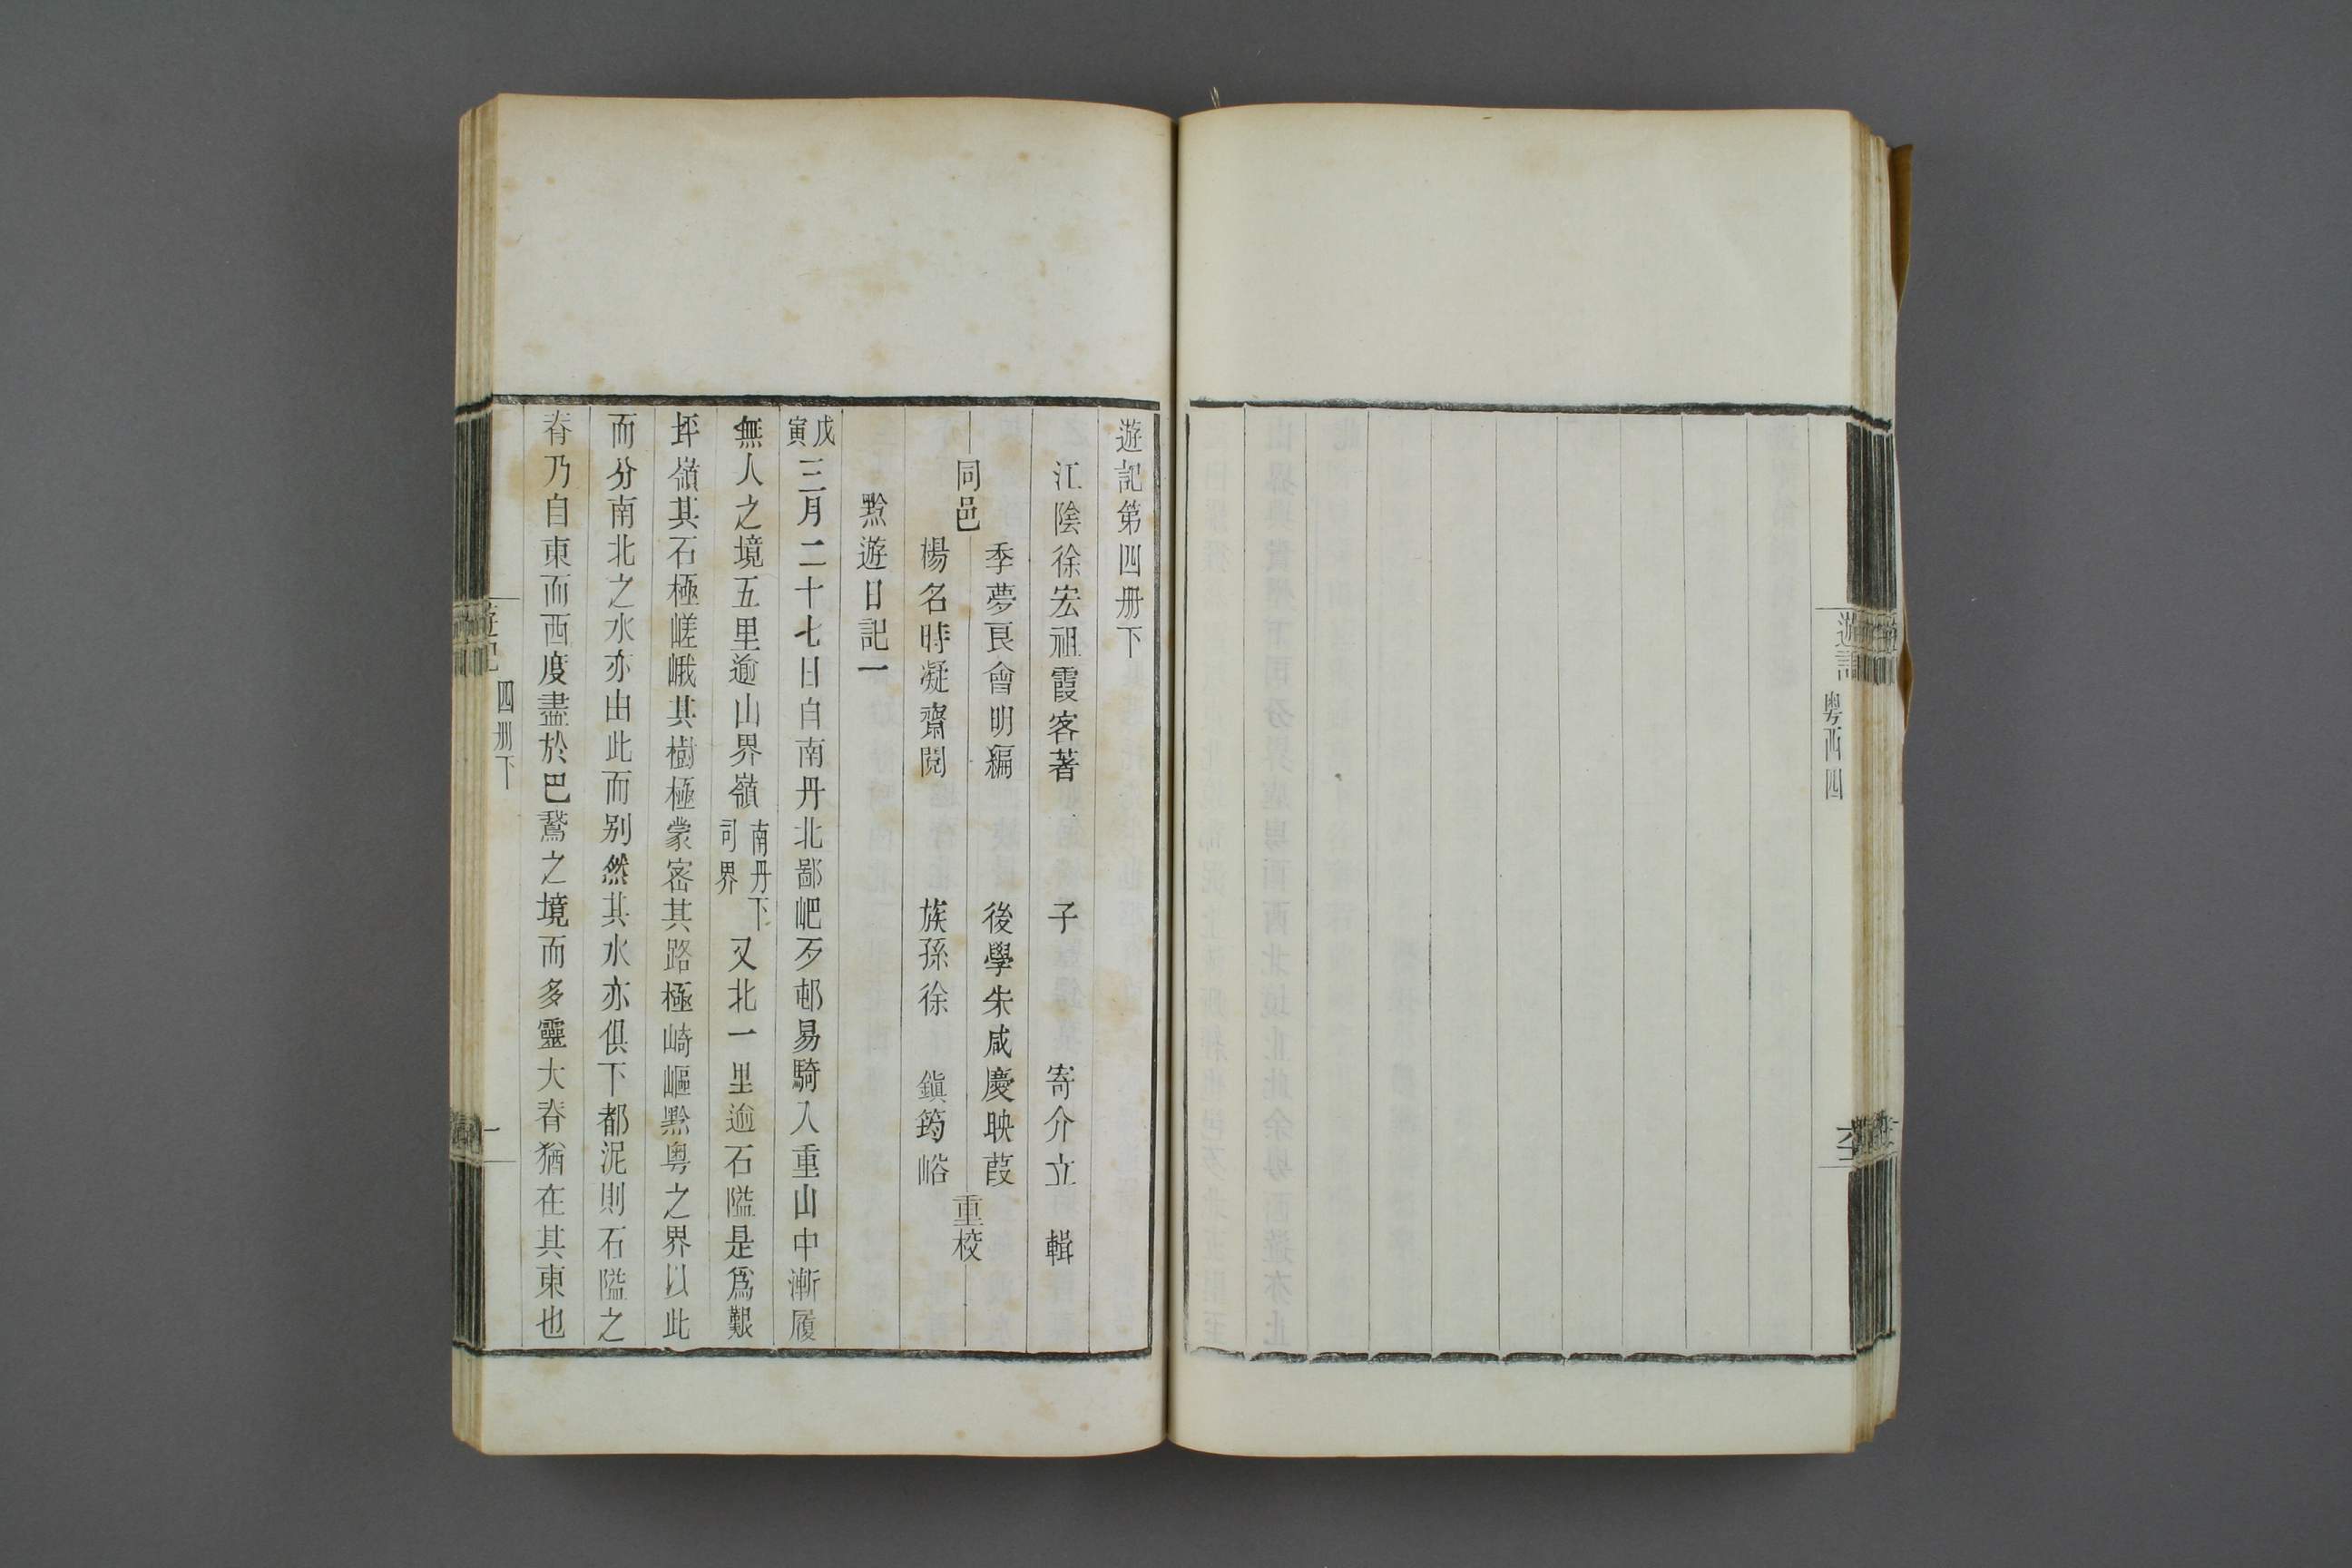 遊記
粵西四
遊記第四册下
江陰徐宏祖霞客著 子 寄介立 輯
同邑
季夢良會明編 後學朱咸慶映葭
楊名時凝齋閱 族孫徐 鎮筠峪
重校
黔遊日記一
戊寅三月二十七日自南丹北鄙岜歹邨易騎入重山中漸履
無人之境五里逾山界嶺南丹下司界又北一里逾石隘是爲艱
坪嶺其石極嵯峨其樹極蒙密其路極崎嶇黔粵之界以此
而分南北之水亦由此而别然其水亦俱下都泥則石隘之
脊乃自東而西度盡於巴鵞之境而多靈大脊猶在其東也
遊記
四册下
一